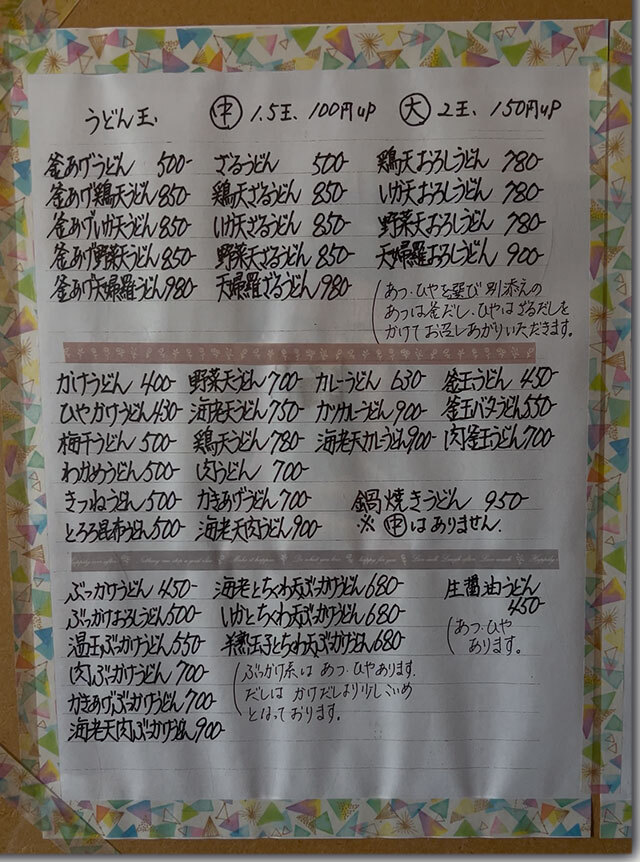 うどん玉、 ㊥ 1.5玉、100円up ㊅ 2玉、150円up
釜あげうどん 500-
釜あげ鶏天うどん 850-
釜あげいか天うどん 850-
釜あげ野菜天うどん 850-
釜あげ天婦羅うどん 980-
ざるうどん 500-
鶏天ざるうどん 850-
いか天ざるうどん 850-
野菜天ざるうどん 850-
天婦羅ざるうどん 980-
鶏天おろしうどん 780-
いか天おろしうどん 780-
野菜天おろしうどん 780-
天婦羅おろしうどん 900-
(あつ・ひやを選び別添えの
あつは釜だし、ひやはざるだしを
かけてお召しあがりいただきます。
かけうどん 400-
ひやかけうどん 430-
梅干うどん 500-
わかめうどん 500-
きつねうどん 500-
とろろ昆布うどん 500-
野菜天うどん 700-
海老天うどん 750-
鶏天うどん 780-
肉うどん 700-
かきあげうどん 700-
海老天肉うどん 900-
カレーうどん 630-
カツカレーうどん 900-
海老天カレーうどん 900-
釜玉うどん 450-
釜玉バターうどん 550-
肉釜玉うどん 700-
鍋焼きうどん 950-
※ ㊥はありません。
ぶっかけうどん 450-
ぶっかけおろしうどん 500-
温玉ぶっかけうどん 550-
肉ぶっかけうどん 700-
かきあげぶっかけうどん 700-
海老天肉ぶっかけうどん 900-
海老とちくわ天ぶっかけうどん 680-
いかとちくわ天ぶっかけうどん 680-
半熟玉子とちくわ天ぶっかけうどん 680-
(ぶっかけ系は あつ・ひやあります。
だしは かけだしより少しこいめ
となっております。
生醤油うどん
450-
(あつ・ひや
あります。